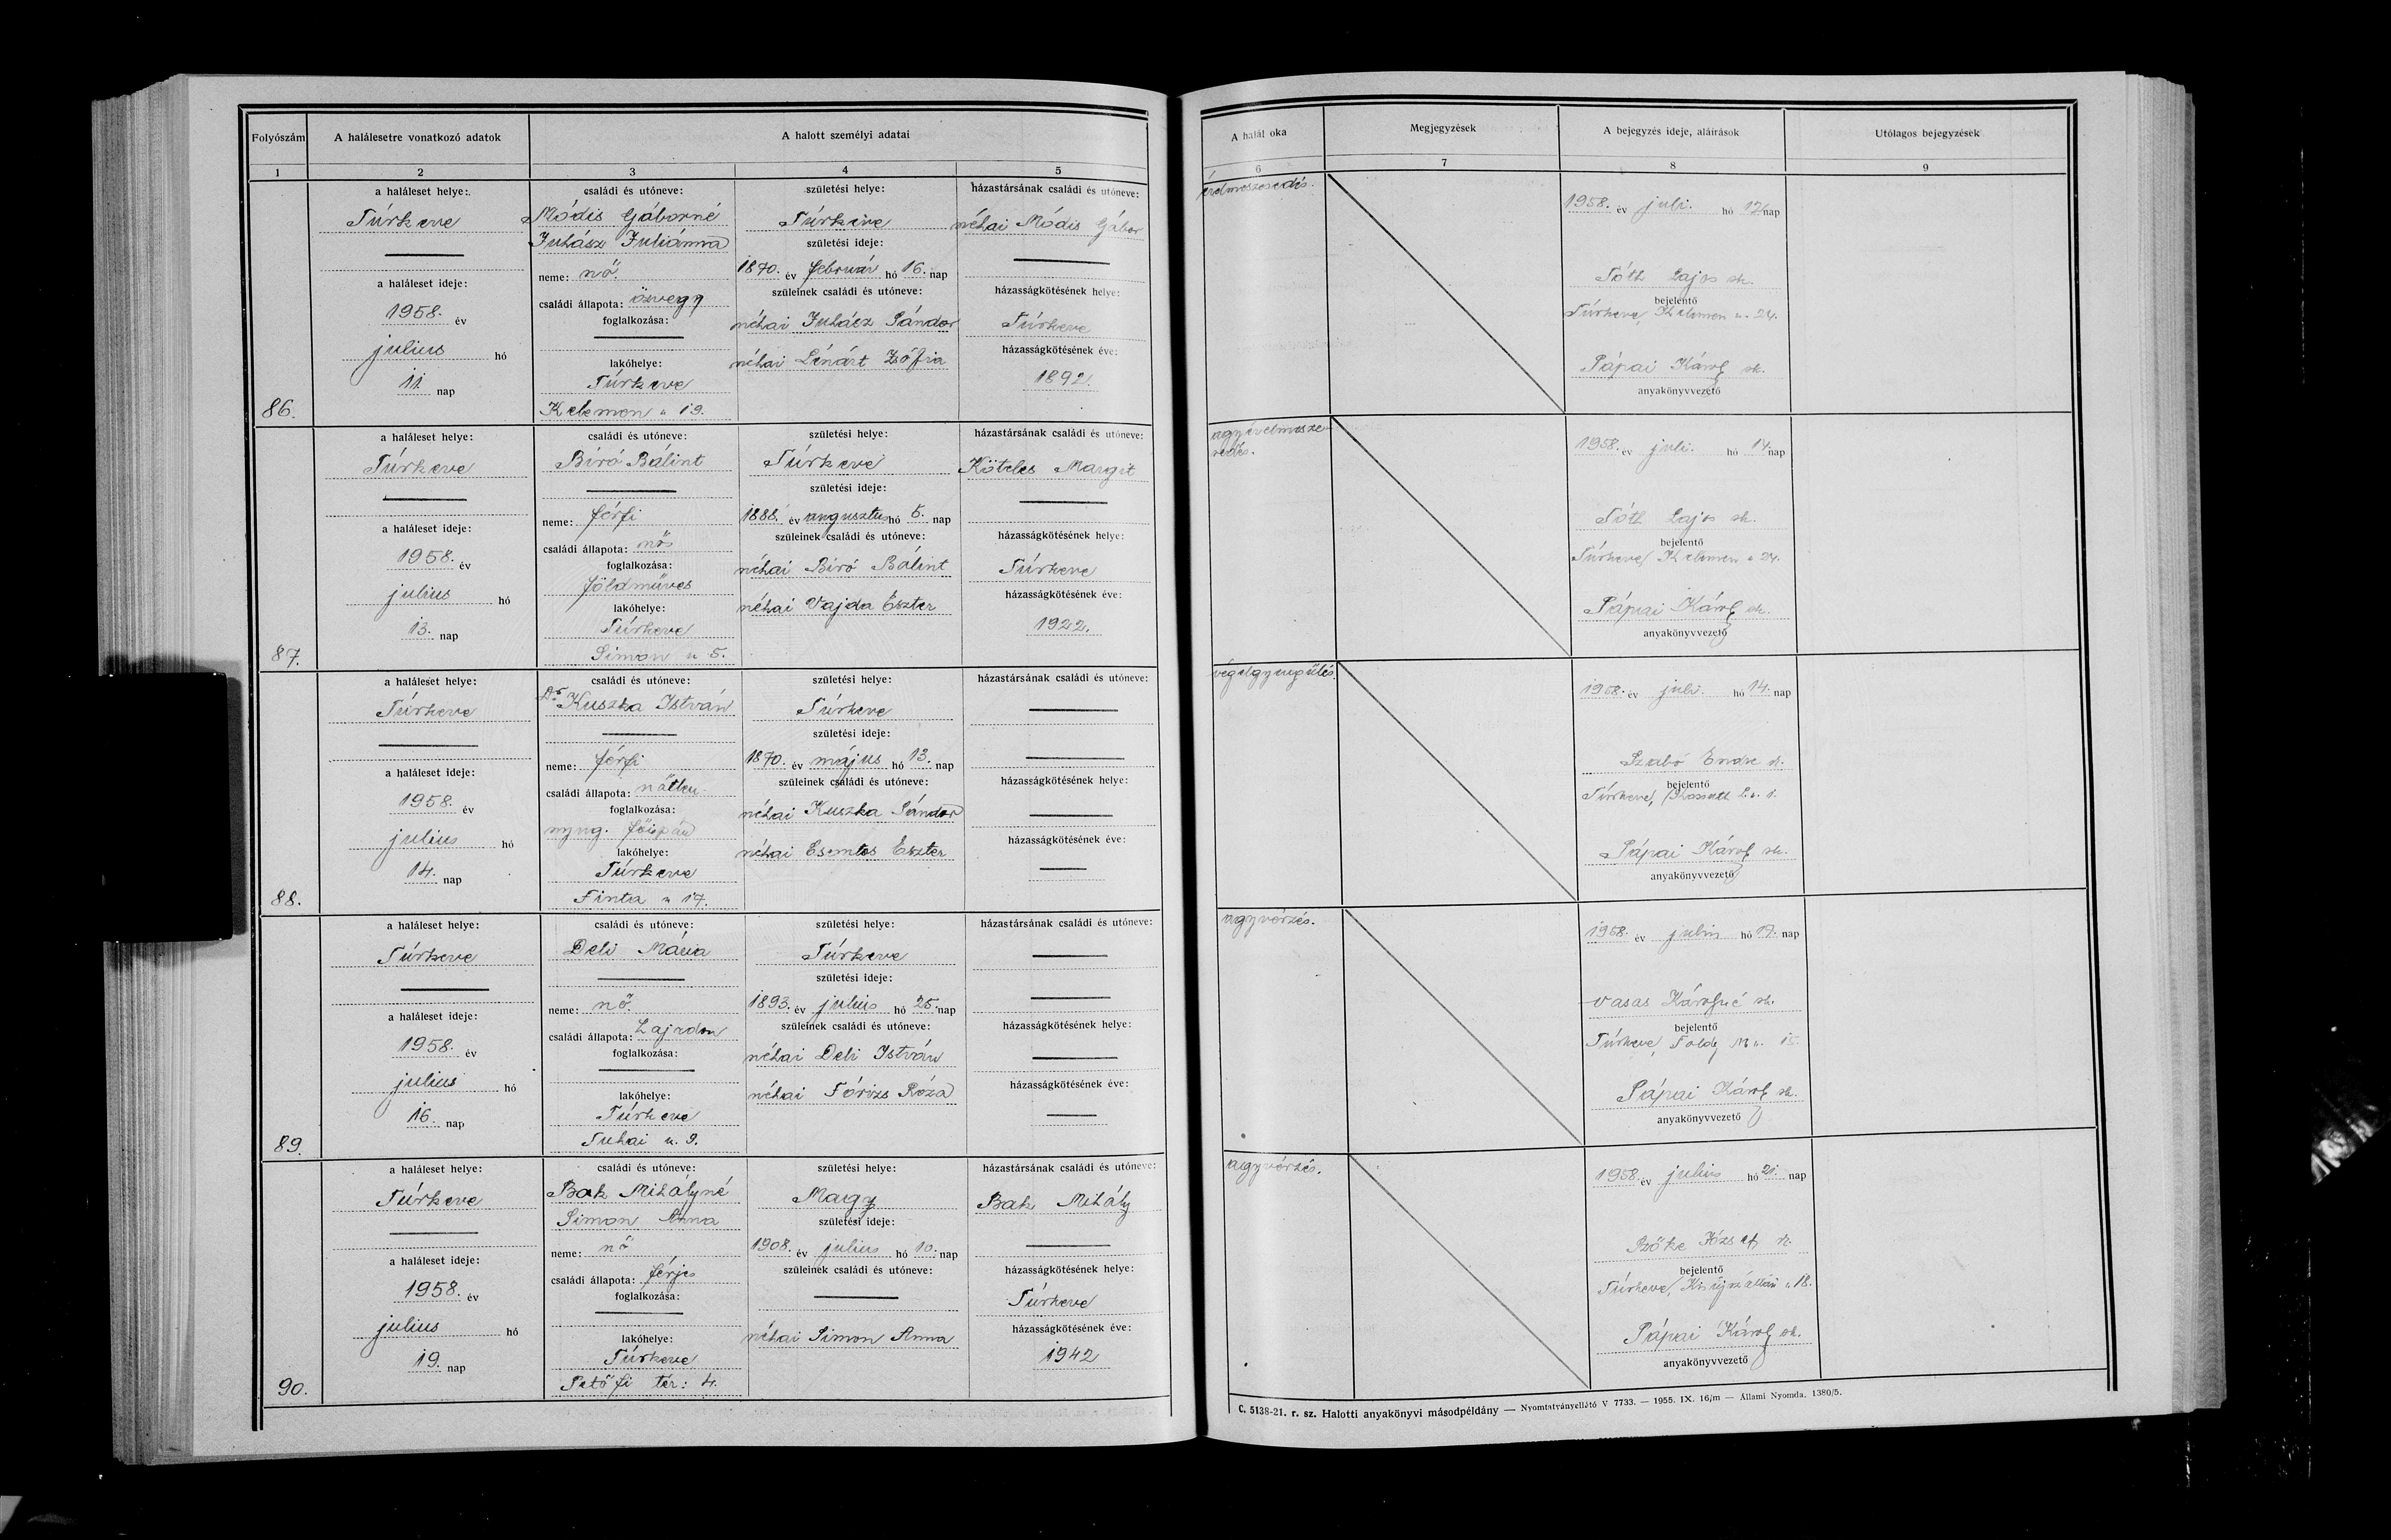 Folyószám
A halálesetre vonatkozó adatok
A halott személyi adatai
1
2
3
4
5
a haláleset helye:
Túrkeve
a haláleset ideje:
1958. év
julius hó
11. nap
86.
családi és utóneve:
Módis Gáborné
Juhász Juliánna
neme: nő
családi állapota: özvegy
foglalkozása:
lakóhelye:
Túrkeve
Kelemen u 19.
születési helye:
Túrkeve
születési ideje:
1870. év február hó 16. nap
szüleinek családi és utóneve:
néhai Juhász Sándor
néhai Lénárt Zsófia
házastársának családi és utóneve:
néhai Módis Gábor
házasságkötésének helye:
Túrkeve
házasságkötésének éve:
1892.
a haláleset helye:
Túrkeve
a haláleset ideje:
1958. év
julius hó
13. nap
87.
családi és utóneve:
Biró Bálint
neme: férfi
családi állapota: nős
foglalkozása:
földmüves
lakóhelye:
Túrkeve
Simon u 5.
születési helye:
Túrkeve
születési ideje:
1888. év augusztus hó 5. nap
szüleinek családi és utóneve:
néhai Biró Bálint
néhai Vajda Eszter
házastársának családi és utóneve:
Köteles Margit
házasságkötésének helye:
Túrkeve
házasságkötésének éve:
1922.
a haláleset helye:
Túrkeve
a haláleset ideje:
1958. év
julius hó
14. nap
88.
családi és utóneve:
Dr. Kuszka István
neme: férfi
családi állapota: nőtlen
foglalkozása:
nyug. főispán
lakóhelye:
Túrkeve
Finta u 17.
születési helye:
Túrkeve
születési ideje:
1870. év május hó 13. nap
szüleinek családi és utóneve:
néhai Kuszka Sándor
néhai Eszter
házastársának családi és utóneve:
házasságkötésének helye:
házasságkötésének éve:
a haláleset helye:
Túrkeve
a haláleset ideje:
1958. év
julius hó
16. nap
89.
családi és utóneve:
Deli Mária
neme: nő
családi állapota: hajadon
foglalkozása:
lakóhelye:
Túrkeve
Tuhai u. 9.
születési helye:
Túrkeve
születési ideje:
1893. év julius hó 25. nap
szüleinek családi és utóneve:
néhai Deli István
néhai Tórizs Róza
házastársának családi és utóneve:
házasságkötésének helye:
házasságkötésének éve:
a haláleset helye:
Túrkeve
a haláleset ideje:
1958. év
julius hó
19. nap
90.
családi és utóneve:
Bak Mihályné
Simon Anna
neme: nő
családi állapota: férjes
foglalkozása:
lakóhelye:
Túrkeve
Petőfi tér: 4.
születési helye:
Margy
születési ideje:
1908. év julius hó 10. nap
szüleinek családi és utóneve:
néhai Simon Anna
házastársának családi és utóneve:
Bak Mihály
házasságkötésének helye:
Túrkeve
házasságkötésének éve:
1942
A halál oka
Megjegyzések
A bejegyzés ideje, aláírások
Utólagos bejegyzések
6
7
8
9
érelmeszesedés.
1958. év juli. hó 12 nap
Tóth Lajos sk.
bejelentő
Túrkeve, Kelemen u. 24.
Pápai Károly sk.
anyakönyvvezető
agyérelmesze-
sedés.
1958. év juli. hó 14 nap
Tóth Lajos sk.
bejelentő
Túrkeve, Kelemen u 24.
Pápai Károly sk.
anyakönyvvezető
végelgyengülés.
1958. év juli. hó 14. nap
Szabó Endre sk.
bejelentő
Túrkeve, Kossuth L. u. 1.
Pápai Károly sk.
anyakönyvvezető
agyvérzés.
1958. év julius hó 17. nap
Vasas Károlyné sk.
bejelentő
Túrkeve, Földy M u. 15.
Pápai Károly sk.
anyakönyvvezető
agyvérzés.
1958. év julius hó 21. nap
Szőke József sk.
bejelentő
Túrkeve, Kisújszállási u 18.
Pápai Károly sk.
anyakönyvvezető
C. 5138-21. r. sz. Halotti anyakönyvi másodpéldány — Nyomtatványellátó V 7733. — 1955. IX. 16/m — Állami Nyomda. 1380/5.